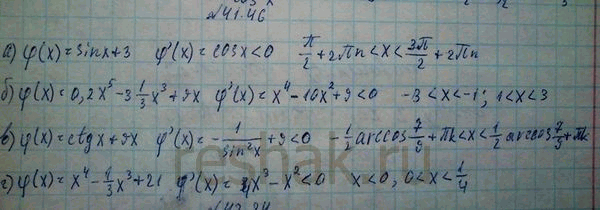 №41.46
а) φ(x) = sinx+3 φ'(x) = cosx<0 π/2 + 2πn < x < 3π/2 + 2πn
б) φ(x) = 0,2x⁵ - 3 1/3 x³ + 9x φ'(x) = x⁴ - 10x² + 9 < 0 -3 < x < -1; 1 < x < 3
в) φ(x) = ctgx + 9x φ'(x) = - 1/sin²x + 9 < 0 - 1/2 arccos 7/9 + πk < x < 1/2 arccos 7/9 + πk
г) φ(x) = x⁴ - 1/3 x³ + 21 φ'(x) = 4x³ - x² < 0 x < 0, 0 < x < 1/4
reshak.ru